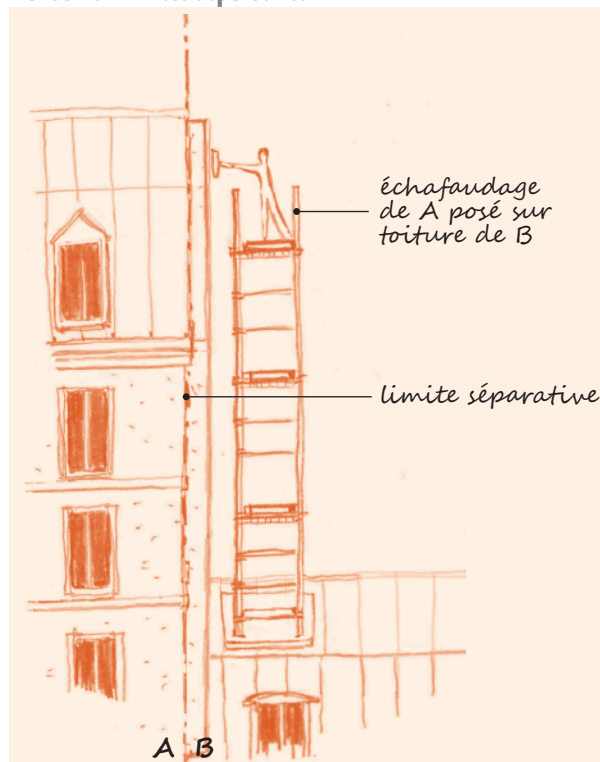 échafaudage
de A posé sur
toiture de B
limite séparative
A B